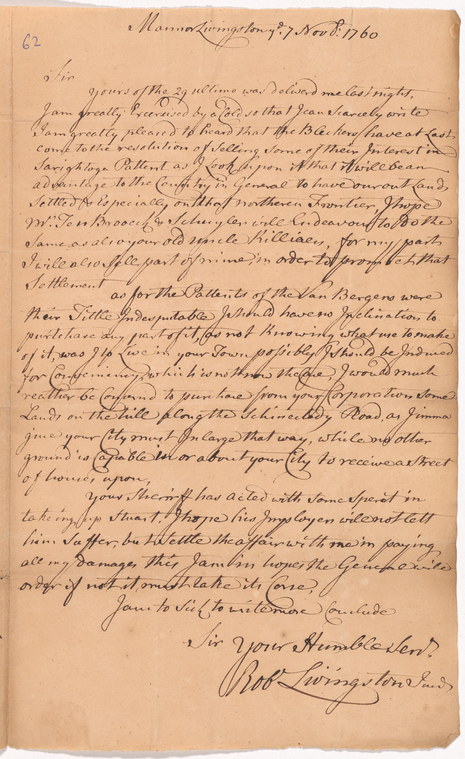 62
Mannor Livingston yᵉ. 7 Novbʳ. 1760
Sir
yours of the 29 ultimo was deliverd me last night,
I am greatly Excersised by a Cold so that I can Scarcely write
I am greatly pleased to heard that the Bleekers have at Last
come to the resolution of Selling some of their Interest in
Sarightoga Pattent as I Look upon it that it will be an
advantage to the Country in General to have our out Lands
Settled & Especially on that northeren Frontier, I hope
Mʳ. Ten Broock & Schuyler will Endeavour to Do the
Same, as also your old uncle Killiaen, for my part
I will also Sell part of mine, in order to promote that
Settlement
as for the Pattents of the Van Bergens were
their Tittle Indesputable I should have no Inclination to
purtchase any part of it, as not Knowing what use to make
of it, was I to Live in your Town possibly I should be Induced
for Conveniency, which is not now the Case, I would much
reather be Concernd to purchase from your Corporation Some
Lands on the hill along the Schinectedy Road, as I imma
gine your City must Inlarge that way, while no other
ground is Capable in or about your City to receive a Street
of houses upon,
Your Sherriff has acted with Some Sperit in
takeing up Stuart. I hope his Imployers will not Lett
him Suffer, but Settle the affair with me in paying
all my damages this I am in hopes the General will
order if not it must take its Corse,
I am to Sick to write more Conclude
Sir Your Humble Servᵗ.
Robᵗ Livingston Junʳ